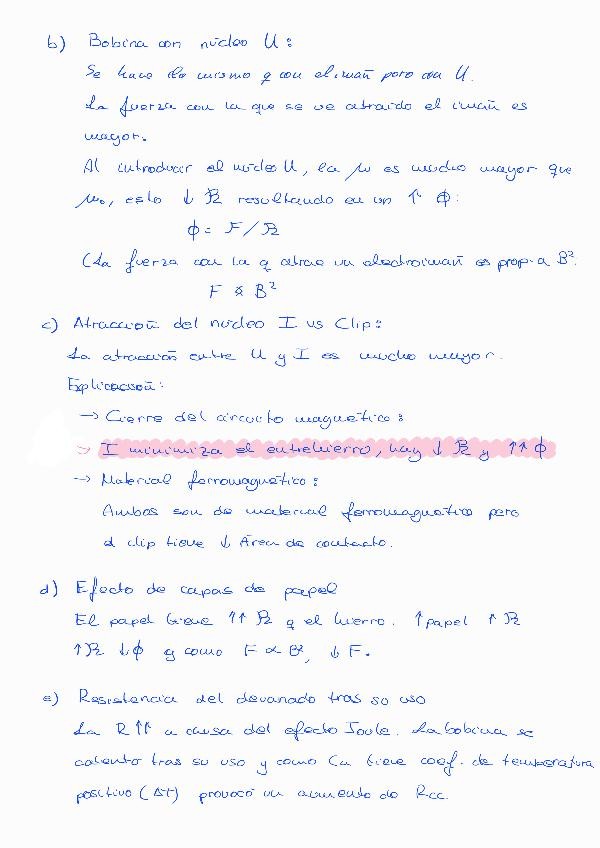 b) Bobina con núcleo U:
Se hace lo mismo q con el imañ pero con U.
La fuerza con la que se ve atraido el imañ es
mayor.
Al introducir el núcleo U, la μ es mucho mayor que
μ₀, esto ↓ R resultando en un ↑ ϕ:
ϕ = F / R
(La fuerza con la q atrae un electroimañ es prop. a B²
F ∝ B²
c) Atracción del núcleo I vs Clip:
La atracción entre U y I es mucho mayor.
Explicación:
→ Cierre del circuito magnético:
→ I minimiza el entrehierro, hay ↓ R y ↑↑ ϕ
→ Material ferromagnético:
Ambos son de material ferromagnético pero
el clip tiene ↓ Área de contacto.
d) Efecto de capas de papel
El papel tiene ↑↑ R q el hierro. ↑ papel ↑ R
↑R ↓ϕ y como F ∝ B², ↓ F.
e) Resistencia del devanado tras su uso
La R ↑↑ a causa del efecto Joule. La bobina se
calento tras su uso y como Cu tiene coef. de temperatura
positivo (Δt) provocó un aumento de Rcc.